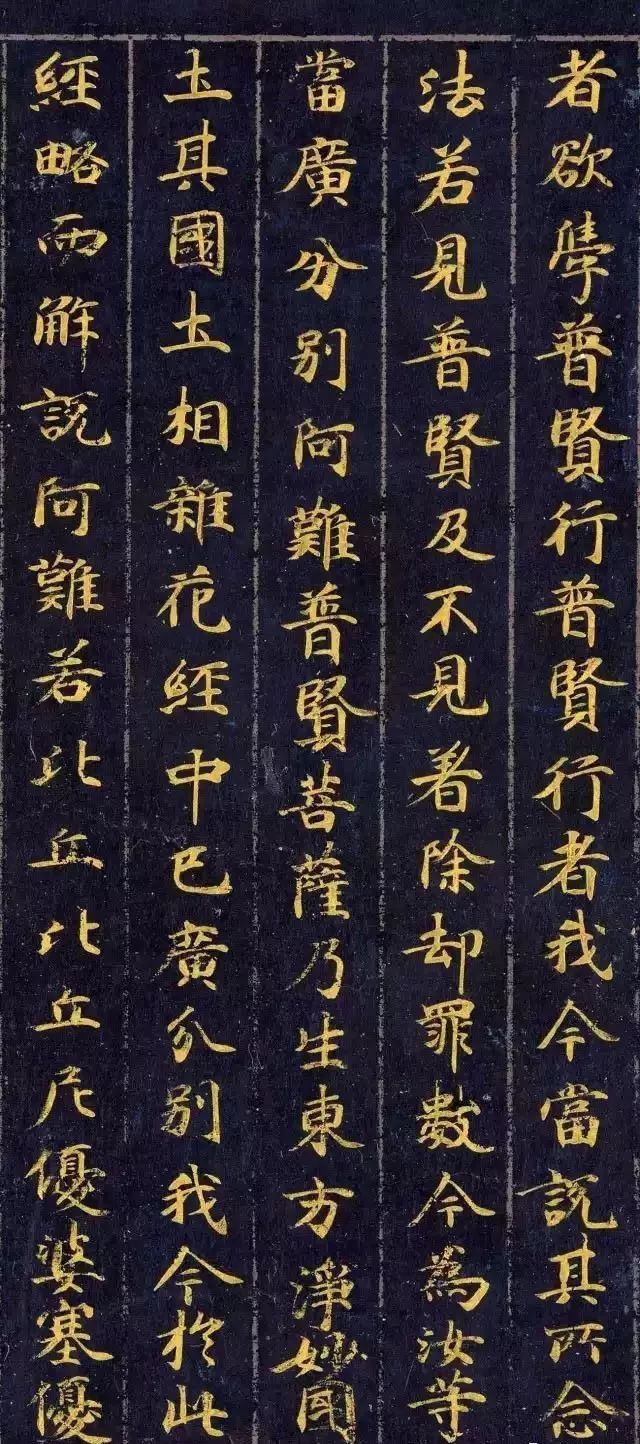 者欲學普賢行普賢行者我今當説其所念
法若見普賢及不見者除却罪數今為汝等
當廣分別阿難普賢菩薩乃生東方淨妙國
土其國土相雜花經中已廣分別我今於此
經略而解説阿難若比丘比丘尼優婆塞優